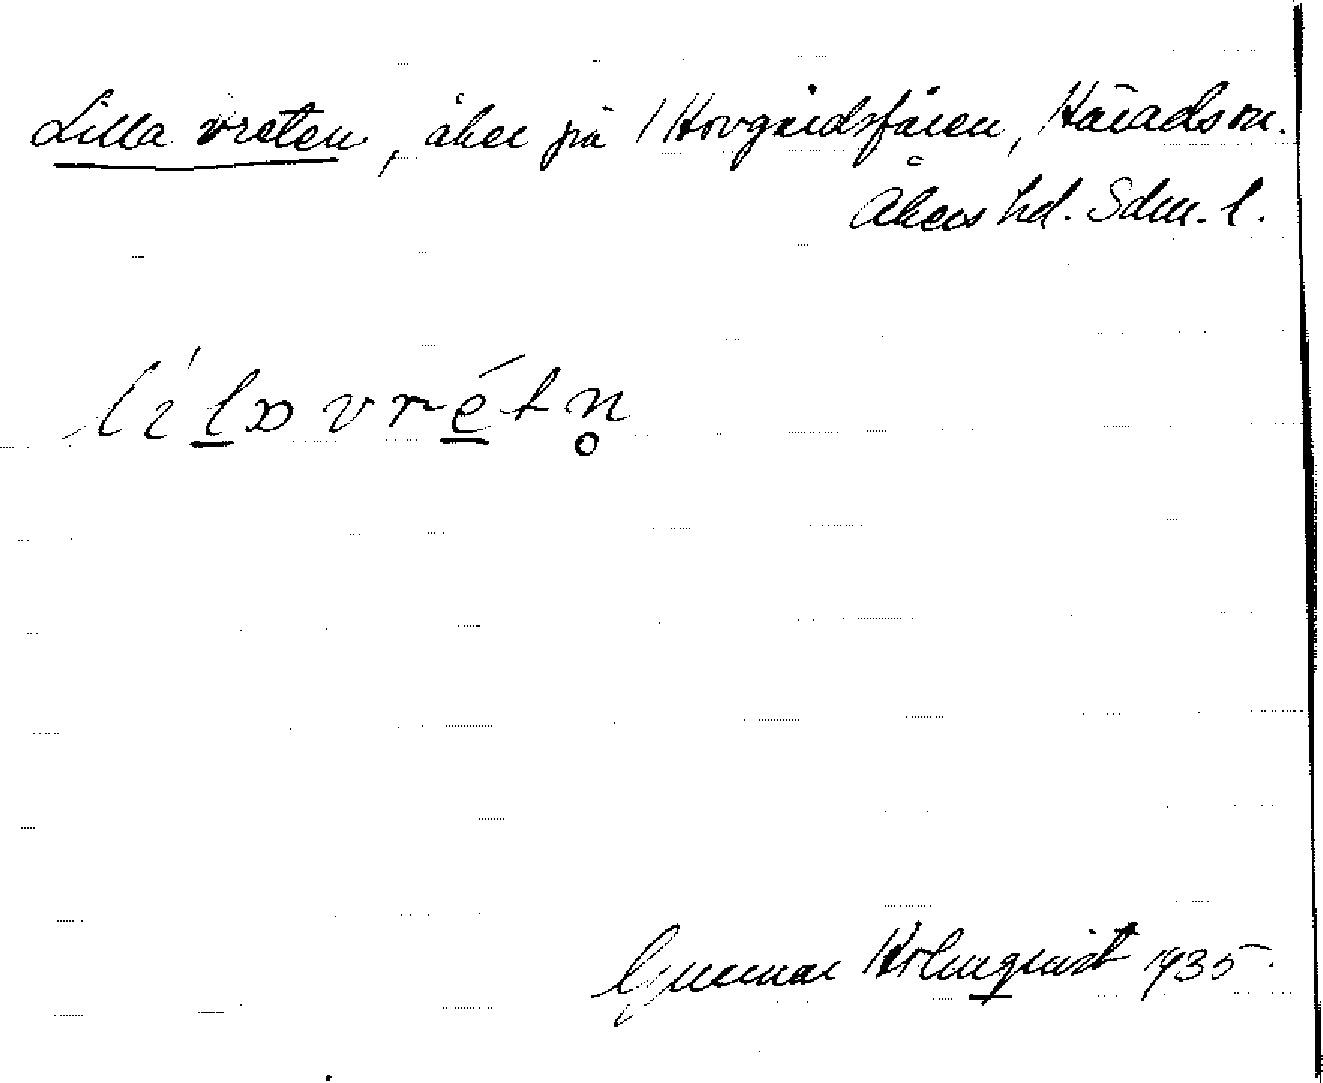 Lilla vreten, åker på Hovgårdsfåren, Häradson.
Åkers hd. Sdm. l.
lílа vrétn̥
Gunnar Holmqvist 1935.